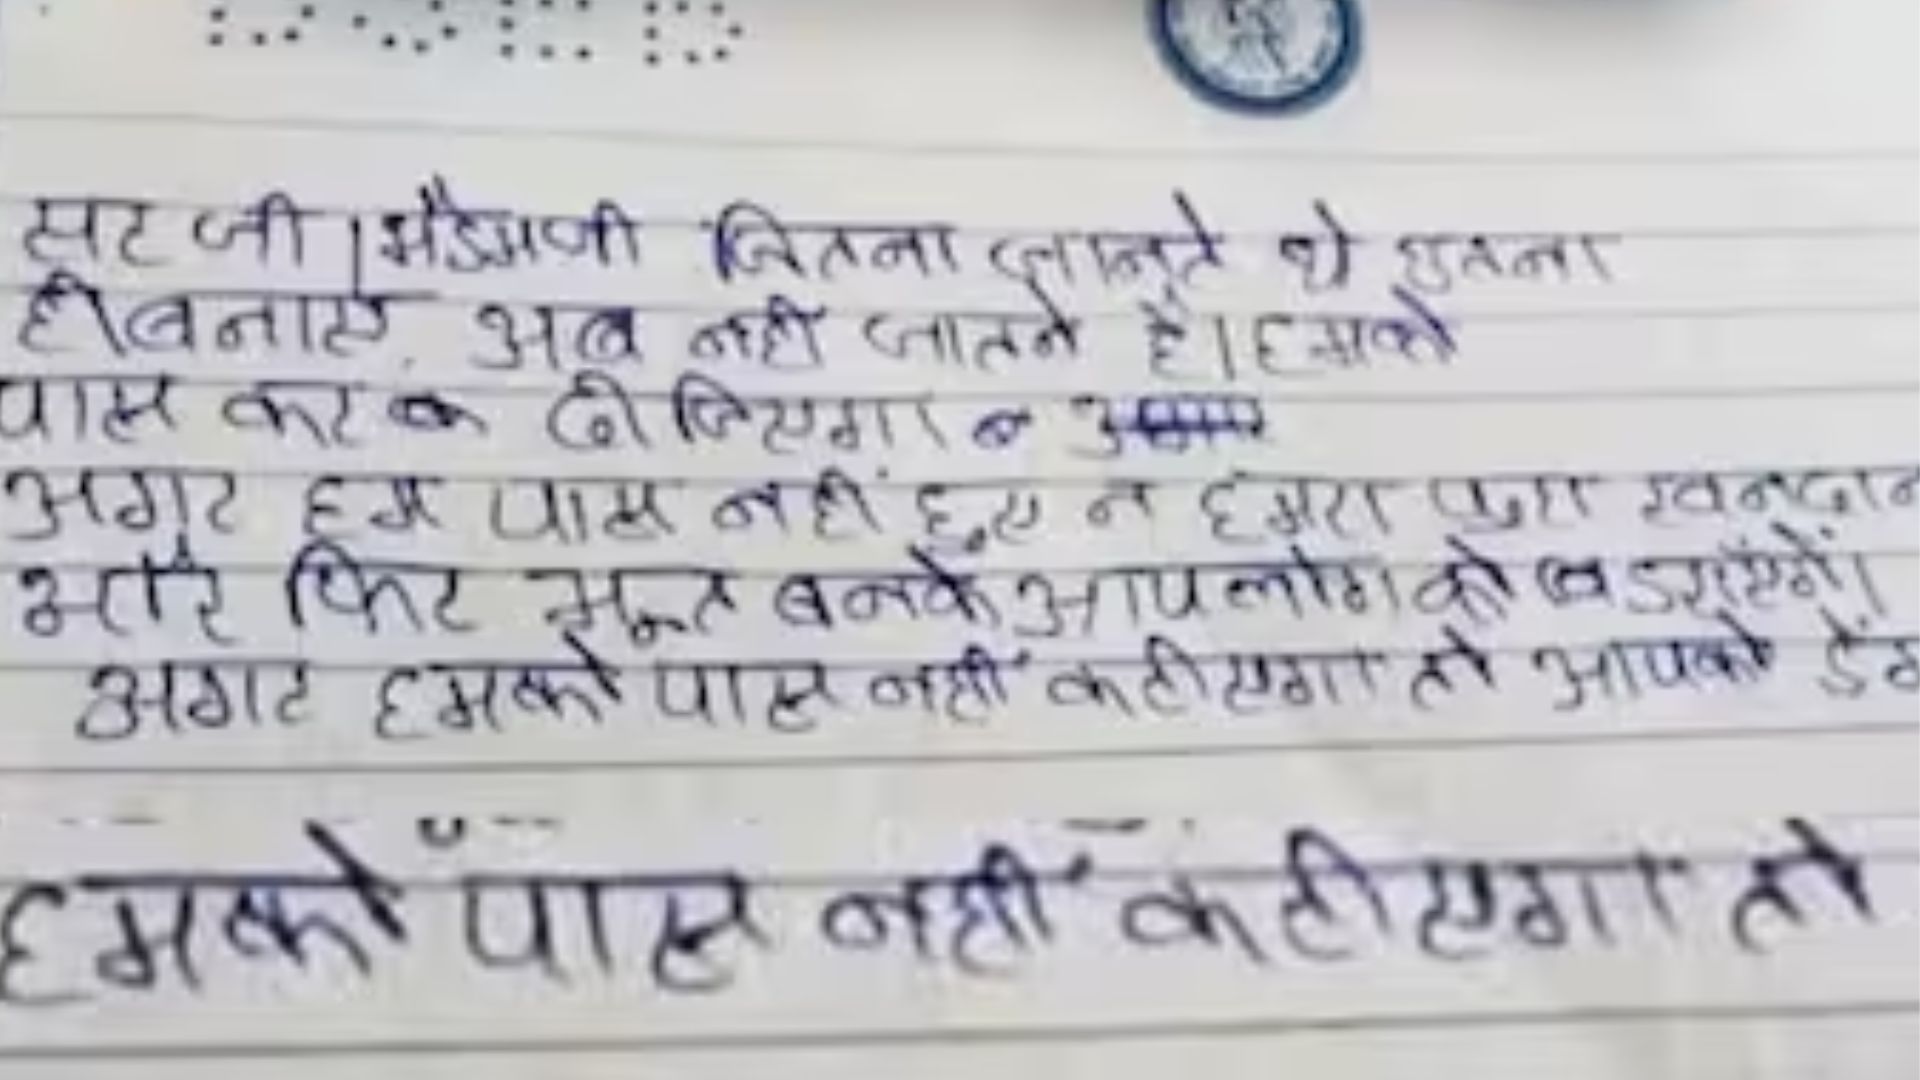 सर जी । मैडम जी जितना जानते थे उतना
ही बनाए अब नही जातने है। हमको
पास कर क दीजिएगा
अगर हम पास नहीं हुए न हमरा पुरा खनदान
और फिर भूत बनके आप लोग को डराएंगें।
अगर हमको पास नहीं करीएगा तो आपको
हमको पास नहीं करीएगा तो